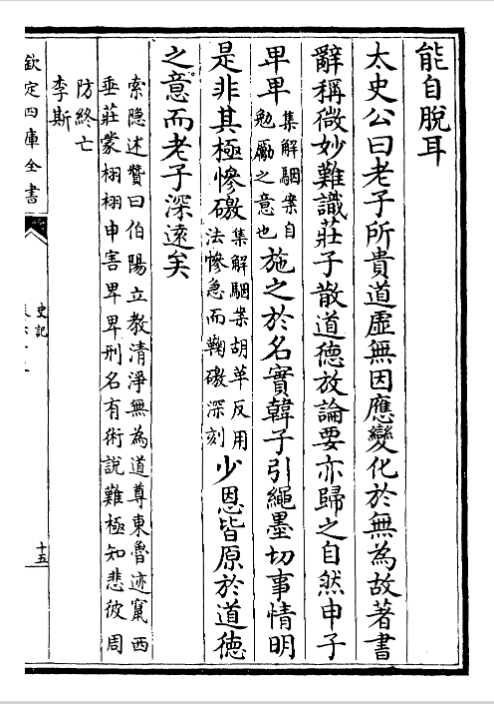 能自脫耳
太史公曰老子所貴道虛無因應變化於無為故著書
辭稱微妙難識莊子散道德放論要亦歸之自然申子
卑卑集解駰案自勉勵之意也施之於名實韓子引繩墨切事情明
是非其極慘礉集解駰案胡革反用法慘急而鞠礉深刻少恩皆原於道德
之意而老子深遠矣
索隱述贊曰伯陽立教清淨無為道尊東魯迹竄西
垂莊蒙栩栩申害卑卑刑名有術說難極知悲彼周
防終亡
李斯
欽定四庫全書
史記
十五